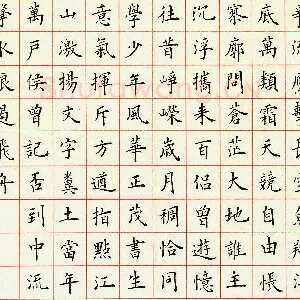 爭流鷹擊長空魚翔淺
底萬類霜天競自由悵
寥廓問蒼茫大地誰主
沉浮攜來百侶曾遊憶
往昔崢嶸歲月稠恰同
學少年風華正茂書生
意氣揮斥方遒指點江
山激揚文字糞土當年
萬戶侯曾記否到中流
擊水浪遏飛舟